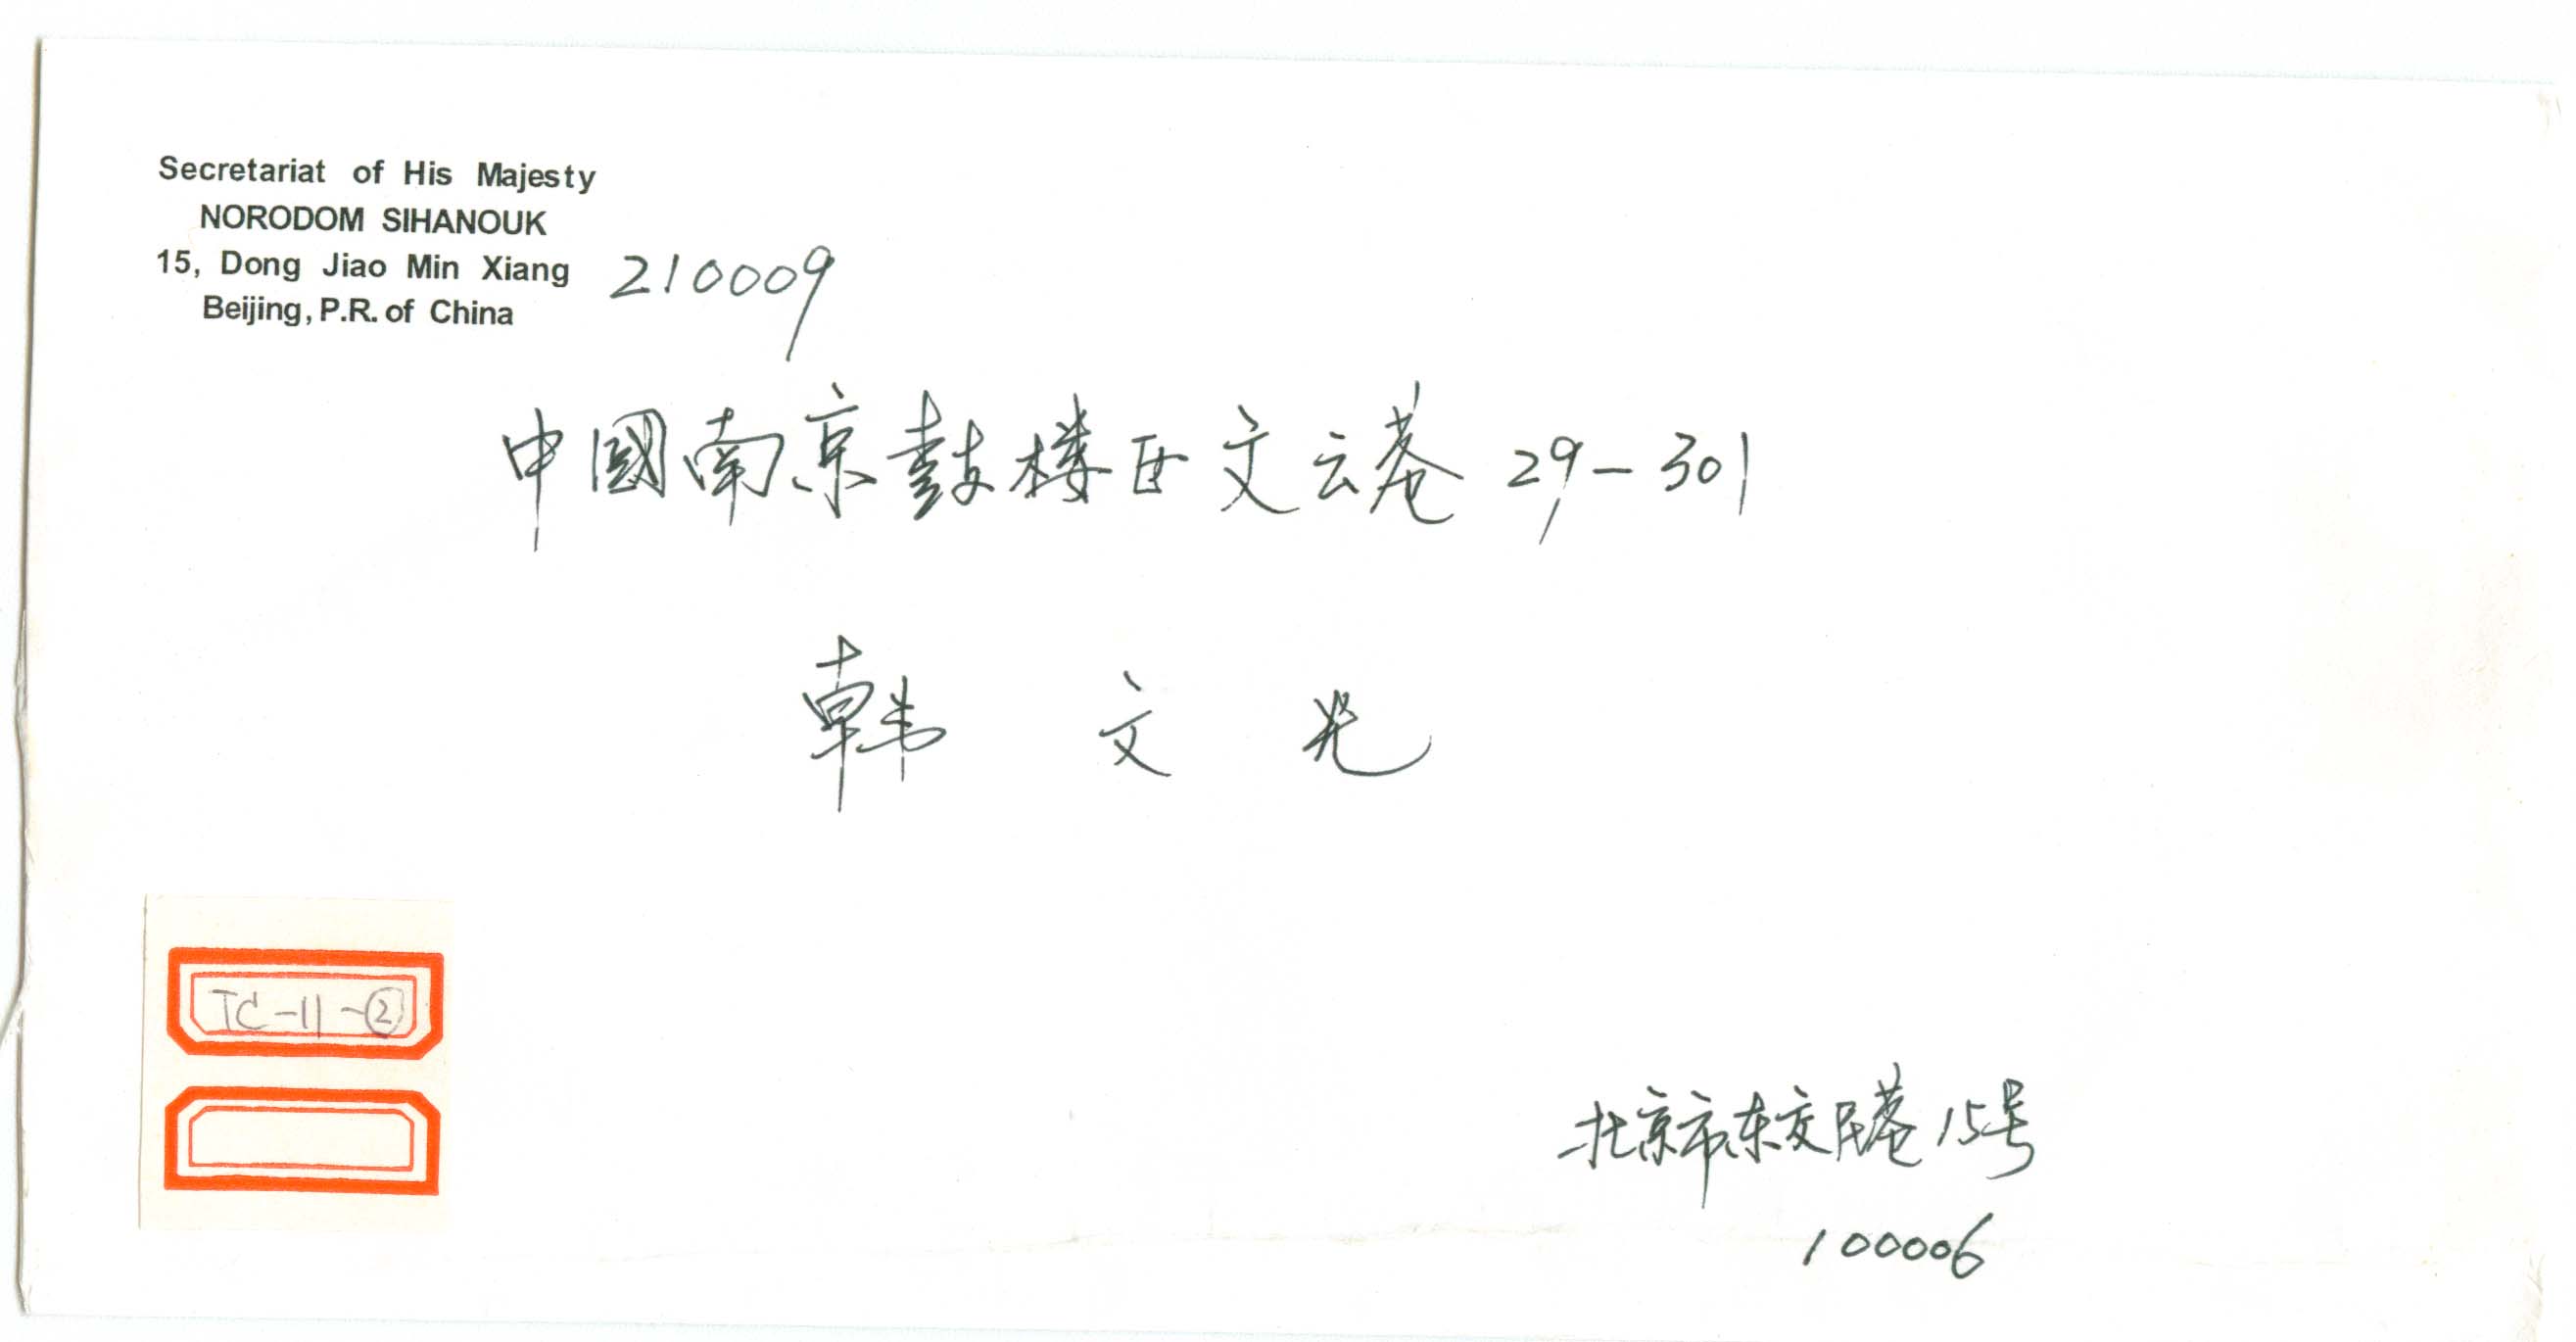 Secretariat of His Majesty
NORODOM SIHANOUK
15, Dong Jiao Min Xiang
Beijing, P.R. of China
210009
中國南京鼓楼区文云巷 29-301
韩文光
TC-11-②
北京市东交民巷15号
100006